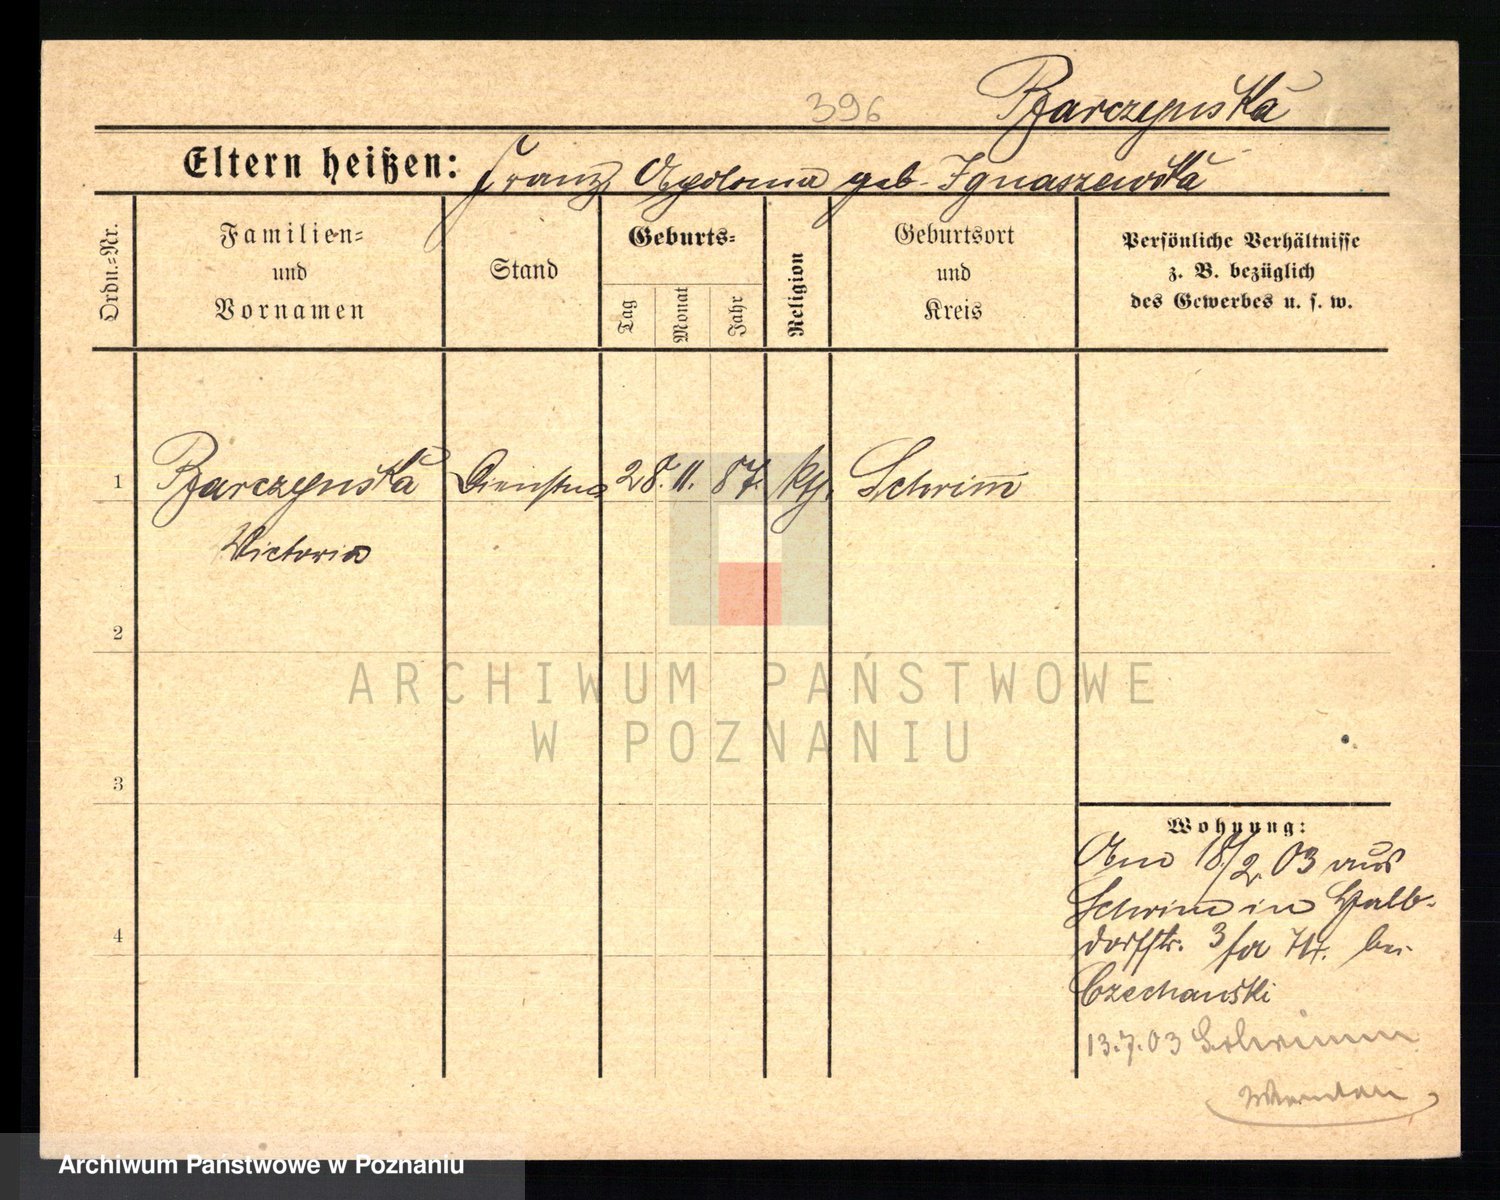 396 Bzarczynska
Eltern heißen: Franz Apolonia geb. Ignaszewska
Ordn.-Nr.
Familien-
und
Vornamen
Stand
Geburts-
Tag
Monat
Jahr
Religion
Geburtsort
und
Kreis
Persönliche Verhältnisse
z. B. bezüglich
des Gewerbes u. s. w.
1 Bzarczynska 28. 11. 87. kth. Schrimm
Victoria
2
3
4
ARCHIWUM PAŃSTWOWE
W POZNANIU
Wohnung:
Am 18/2 03 aus
Schrimm in Halb-
dorfstr. 3 bei
Czechanski
13.7.03 Schrimm
Archiwum Państwowe w Poznaniu